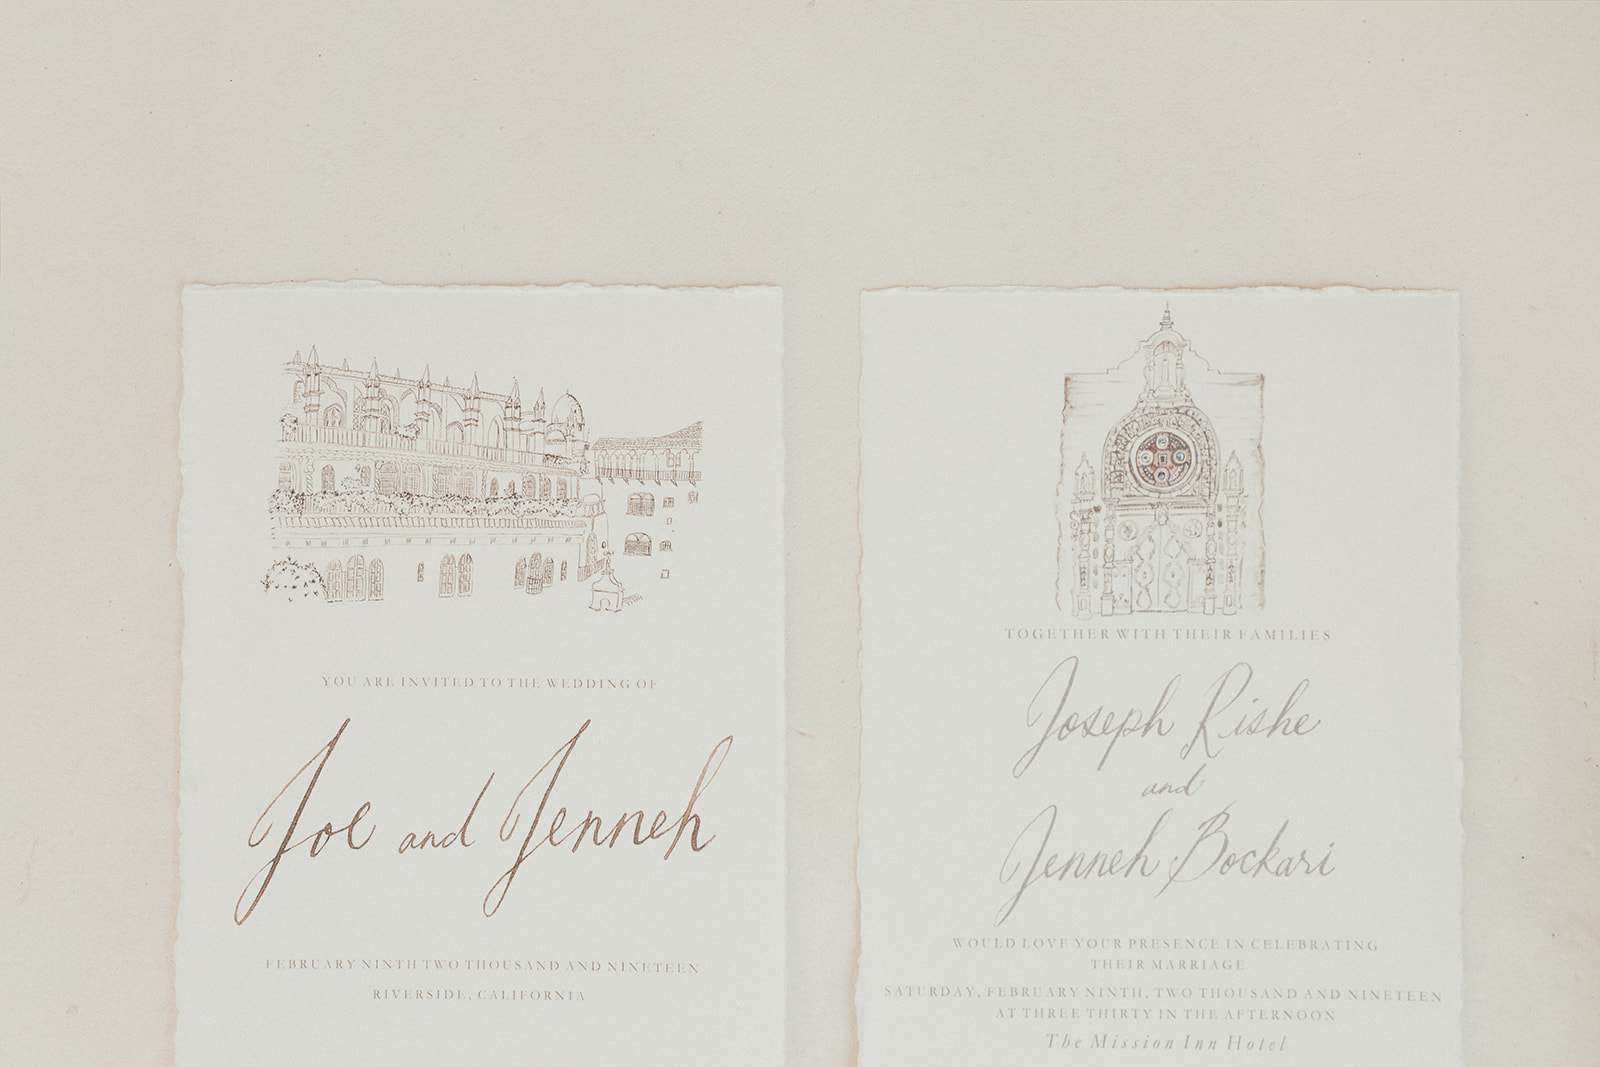 YOU ARE INVITED TO THE WEDDING OF
Joe and Jenneh
FEBRUARY NINTH TWO THOUSAND AND NINETEEN
RIVERSIDE, CALIFORNIA
TOGETHER WITH THEIR FAMILIES
Joseph Rishe
and
Jenneh Bockari
WOULD LOVE YOUR PRESENCE IN CELEBRATING
THEIR MARRIAGE
SATURDAY, FEBRUARY NINTH, TWO THOUSAND AND NINETEEN
AT THREE THIRTY IN THE AFTERNOON
The Mission Inn Hotel